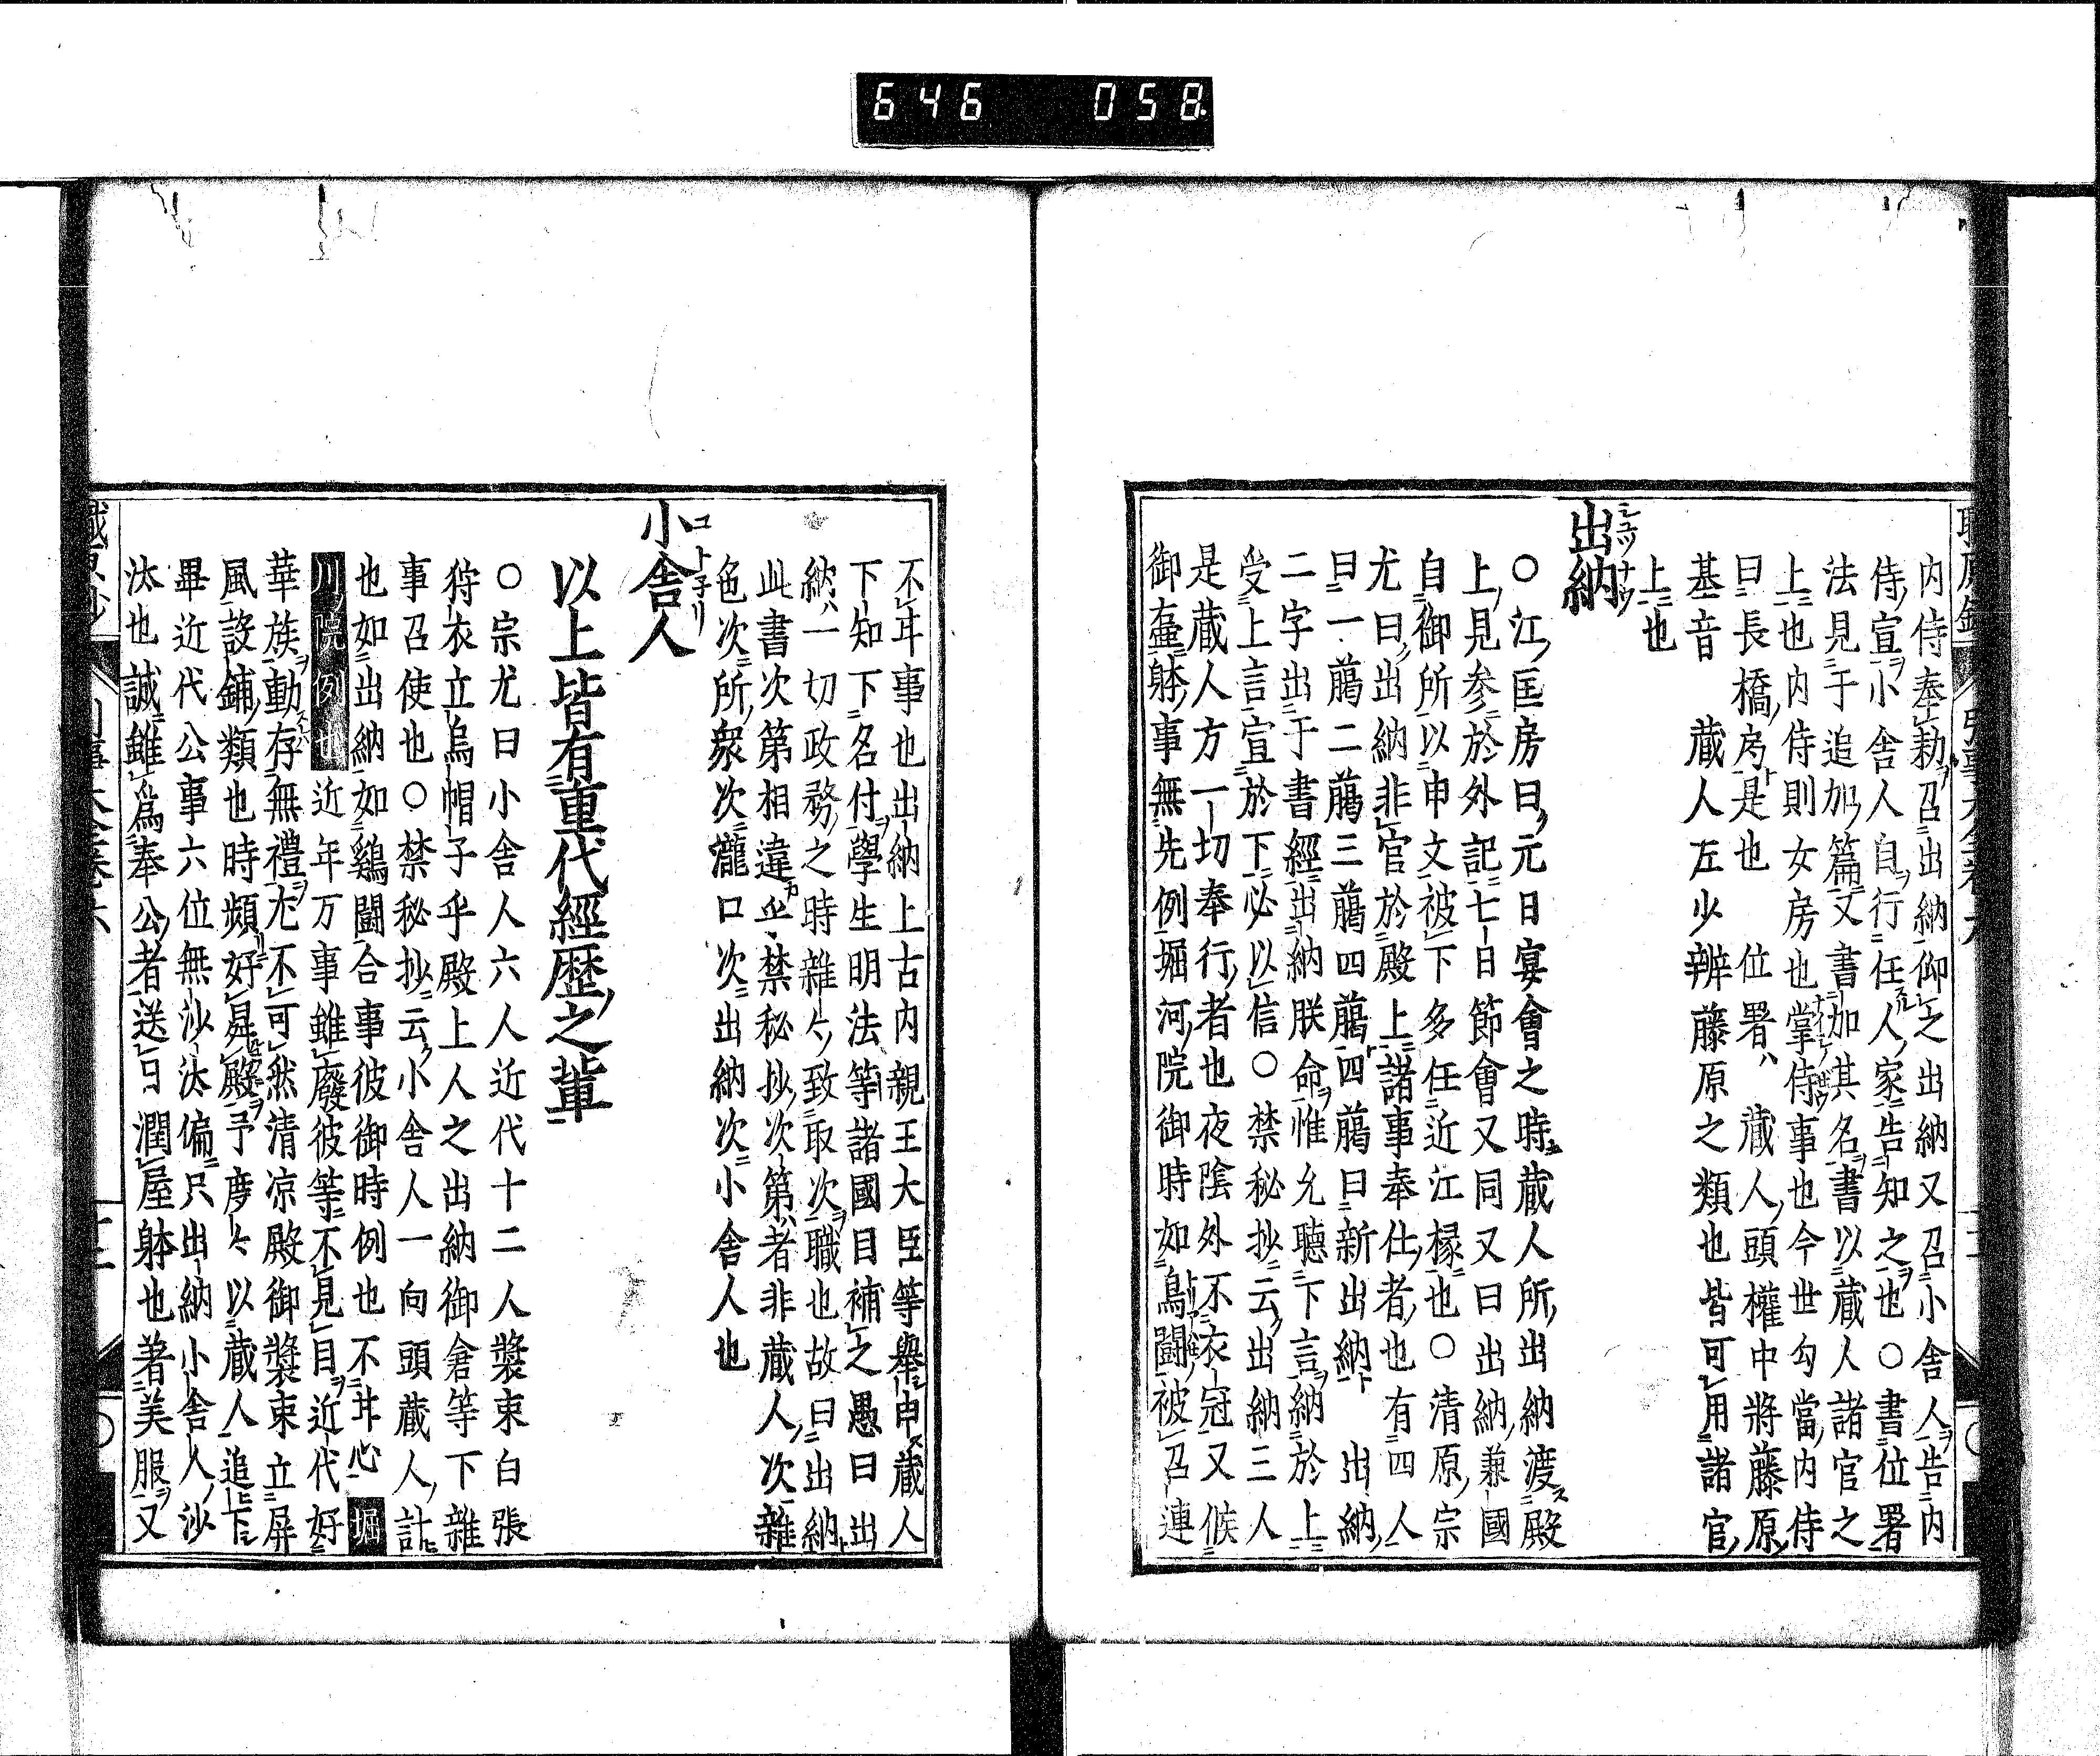 646 058
内侍奉勅召出納仰之出納又召小舍人告内
侍宣小舍人自行任人家告知之也○書位署
法見于追加篇又書加其名書以蔵人諸官之
上也内侍則女房也掌侍事也今世勾當内侍
曰長橋房是也 位署 蔵人頭權中將藤原
基音 蔵人左少辨藤原之類也皆可用諸官
上也
出納
○江匡房曰元日宴會之時蔵人所出納渡殿
上見参於外記七日節會又同又曰出納兼國
自御所以申文被下多任近江掾也○清原宗
尤曰出納非官於殿上諸事奉仕者也有四人
曰一﨟二﨟三﨟四﨟四﨟曰新出納 出納
二字出于書經出納朕命惟允聴下言納於上
受上言宣於下必以信○禁秘抄云出納三人
是蔵人方一切奉行者也夜陰外不衣冠又候
御臺躰事無先例堀河院御時如鳥闘被召連
不丼事也出納上古内親王大臣等舉申蔵人
下知下名付學生明法等諸國目補之愚曰出
納一切政務之時雜〻致取次職也故曰出納
此書次第相違乎禁秘抄次第者非蔵人次雜
色次所衆次瀧口次出納次小舍人也
小舍人
以上皆有重代經歴之輩
○宗尤曰小舍人六人近代十二人装束白張
狩衣立烏帽子乎殿上人之出納御倉等下雜
事召使也○禁秘抄云小舍人一向頭蔵人計
也如出納如鷄闘合事彼御時例也不丼心堀
川院例也近年万事雖廢彼等不見目近代好
華族動存無禮尤不可然清凉殿御装束立屏
風設鋪類也時頻好昇殿予度〻以蔵人追下
畢近代公事六位無沙汰偏只出納小舍人沙
汰也誠雖爲奉公者送日潤屋躰也著美服又